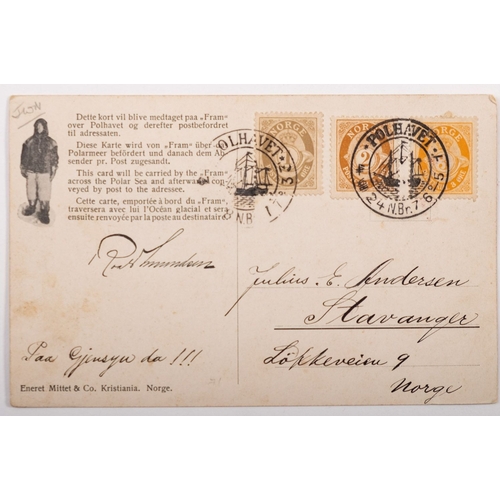 Dette kort vil blive medtaget paa „Fram“
over Polhavet og derefter postbefordret
til adressaten.
Diese Karte wird von „Fram“ über
Polarmeer befördert und danach dem
sender pr. Post zugesandt.
This card will be carried by the „Fram“
across the Polar Sea and afterwards
veyed by post to the adressee.
Cette carte, emportée à bord du „Fram“
traversera avec lui l'Océan glacial et sera
ensuite renvoyée par la poste au destinataire.
NORGE
POLHAVET
NORGE
POLHAVET
Roald Amundsen
Julius. E. Andersen
Stavanger
Løkkeveien 9
Norge
Paa Gjensyn da !!!
Eneret Mittet & Co. Kristiania. Norge.